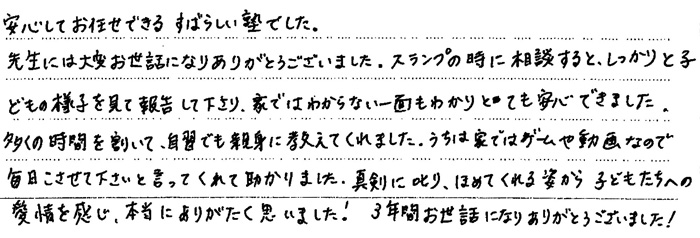 安心してお任せできる すばらしい塾でした。
先生には大変お世話になりありがとうございました。スランプの時に相談すると、しっかりと子
どもの様子を見て報告して下さり、家ではわからない一面もわかりとても安心できました。
多くの時間を割いて、自習でも親身に教えてくれました。うちは家ではゲームや動画なので
毎日こさせて下さいと言ってくれて助かりました。真剣に叱り、ほめてくれる姿から子どもたちへの
愛情を感じ、本当にありがたく思いました! 3年間お世話になりありがとうございました!